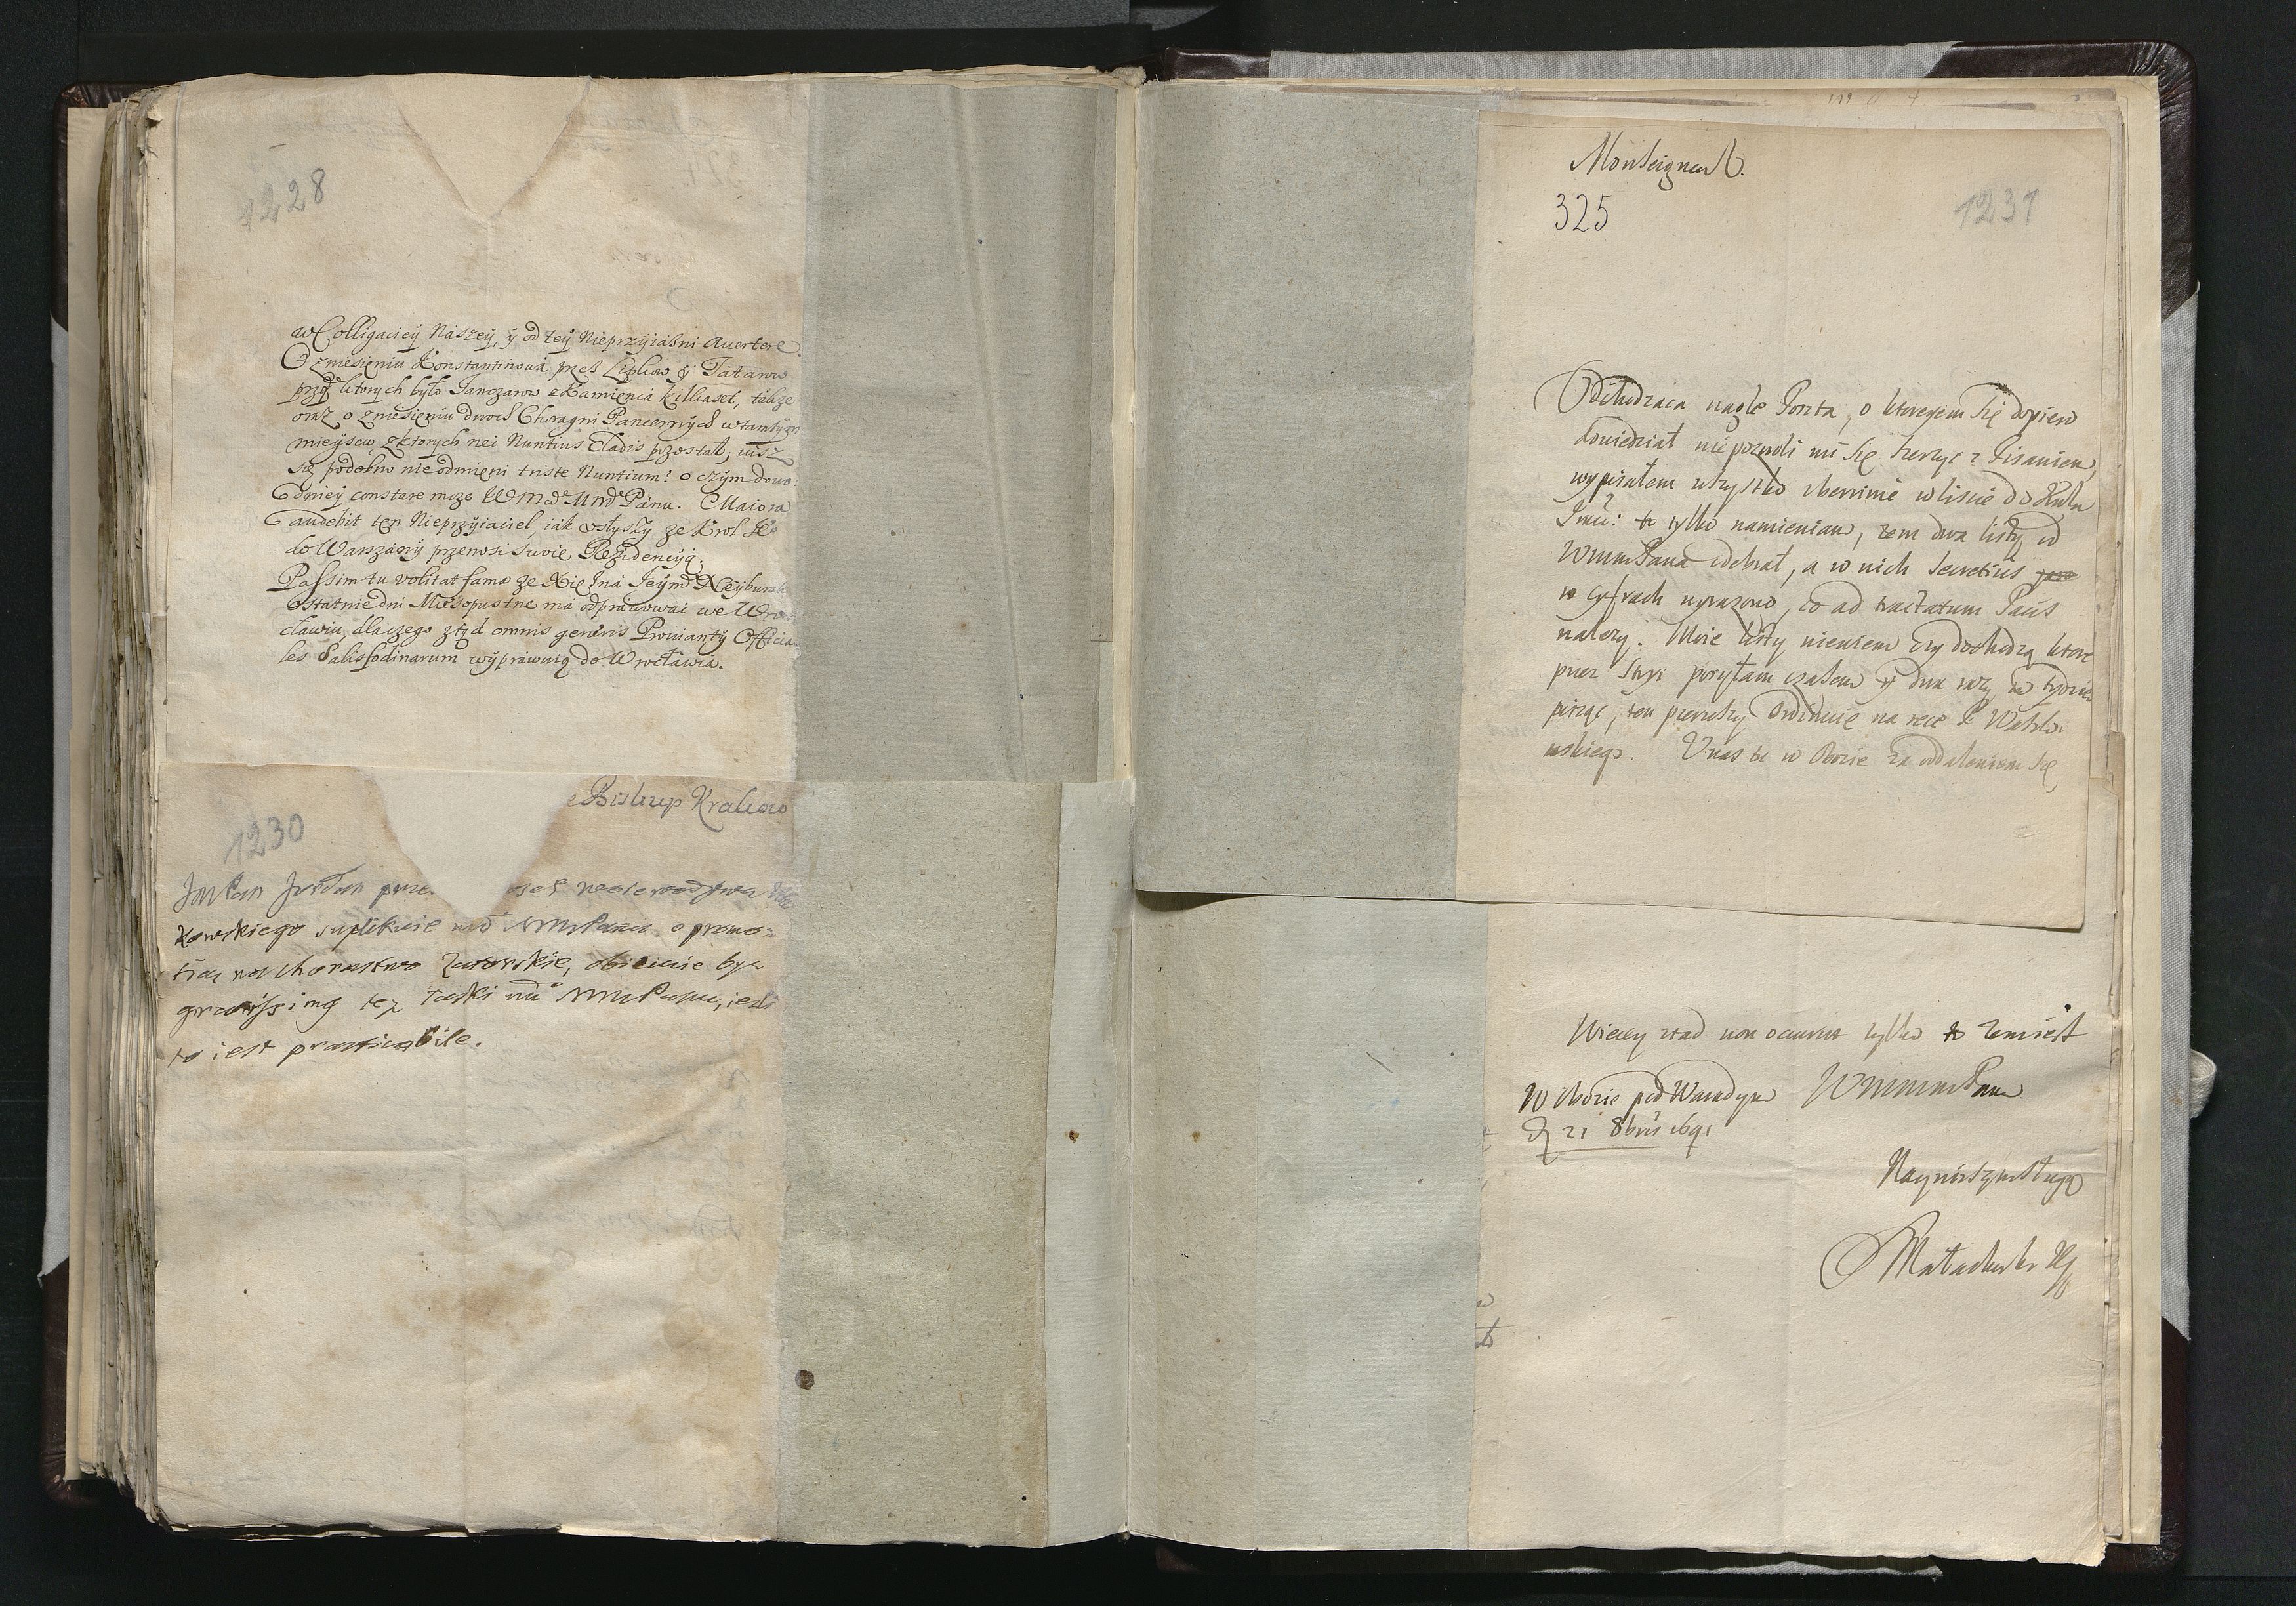 1228
w Colligaciey Naszey, y od tey Nieprzyiaśni avertere.
O zniesieniu Konstantinowa przez Lipkow y Tatarow
przy ktorych było Janczarow z Kamieńca kilkaset, także
oraz o zniesieniu dwoch Chorągni Pancernych w tamtym
mieyscu, z ktorych nei Nuntius Cladis pozostał, iusz
się podobno nie odmieni triste Nuntium! o czym dowo
dniey constare moze WMMPanu. Maiora
audebit ten Nieprzyiaciel, iak usłyszy ze Krol Je
do Warszawy przenosi swoię Rezidencyją.
Passim tu volitat fama ze Xiężna Jeym Neyburska
ostatnie dni Mięsopustne ma odprawować we Wro
cławiu, dlaczego ztąd omnis generis Prowianty Officia
les Salisfodinarum wyprawuią do Wrocławia.
e Biskup Krakow
1230
Jm Pan Jordan
wojewodztwa
kowskiego suplikuie WMMPana o promo
tią na Chorąstwo Zatorskie, obiecuie byc
gratissimus tey łaski WMMPanu, iesli
to iest practicabile.
Monseigneur.
325
1231
Odchodząca nagle Poczta, o ktoreyem się dopiero
dowiedział nie pozwoli mi się szerzyc z Pisaniem,
wypisałem wszystko obszernie w liscie do
Jmci: to tylko namieniam, zem dwa listy od
WMMPana odebrał, a w nich secretius
w cyfrach wyrazono, co ad tractatum Pacis
nalezy. Moie listy niewiem czy dochodzą ktore
przez Stryi posyłam czasem y dwa razy w tydzien
pisząc, ten pierwszy ordinuię na ręce P.
wskiego. U nas tu w Obozie za oddaleniem się
Więcey ztad non occurrit tylko to zem iest
W Obozie pod Waradynem WMMMPana
D 21 8bris 1691
Nayniszym sługą
Małachowski